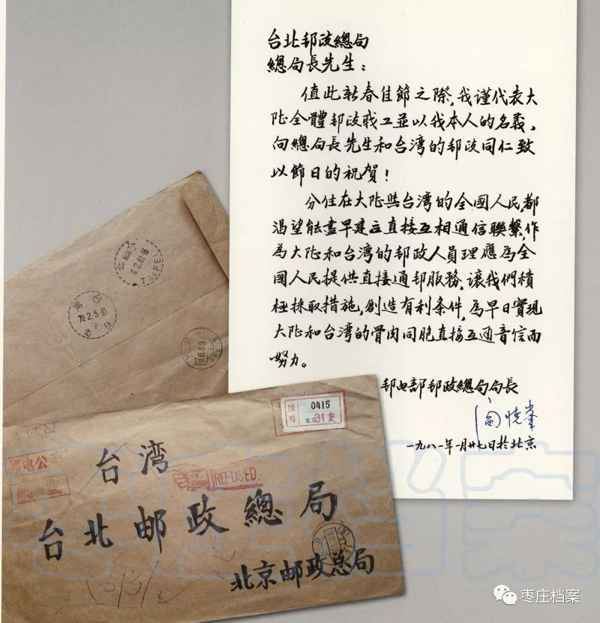 台北郵政總局
總局長先生：
值此新春佳節之際，我谨代表大
陆全體郵政職工並以我本人的名義，
向總局長先生和台湾的郵政同仁致
以節日的祝賀！
分住在大陆與台湾的全國人民，都
渴望能盡早建立直接互相通信聯繫，作
為大陆和台湾的郵政人員理應為全
國人民提供直接通郵服務，讓我們積
極採取措施，創造有利条件，為早日實現
大陆和台湾的骨肉同胞直接互通音信而
努力。
邮电部郵政總局局長
一九八一年一月廿七日於北京
TAIPEI
0415
北京31支
REFUSED
台湾
台北邮政總局
北京邮政总局
枣庄档案